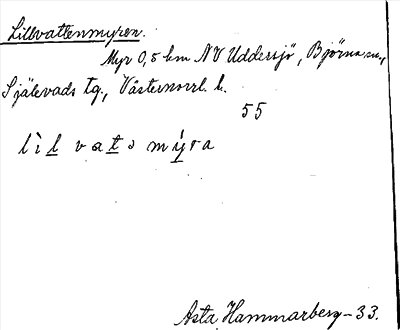 Lillvattenmyren.
Myr 0,5 km NV Uddersjö, Björna sn,
Själevads tg., Västernorrl. l.
55
lìl vatə mýra
Asta Hammarberg-33.